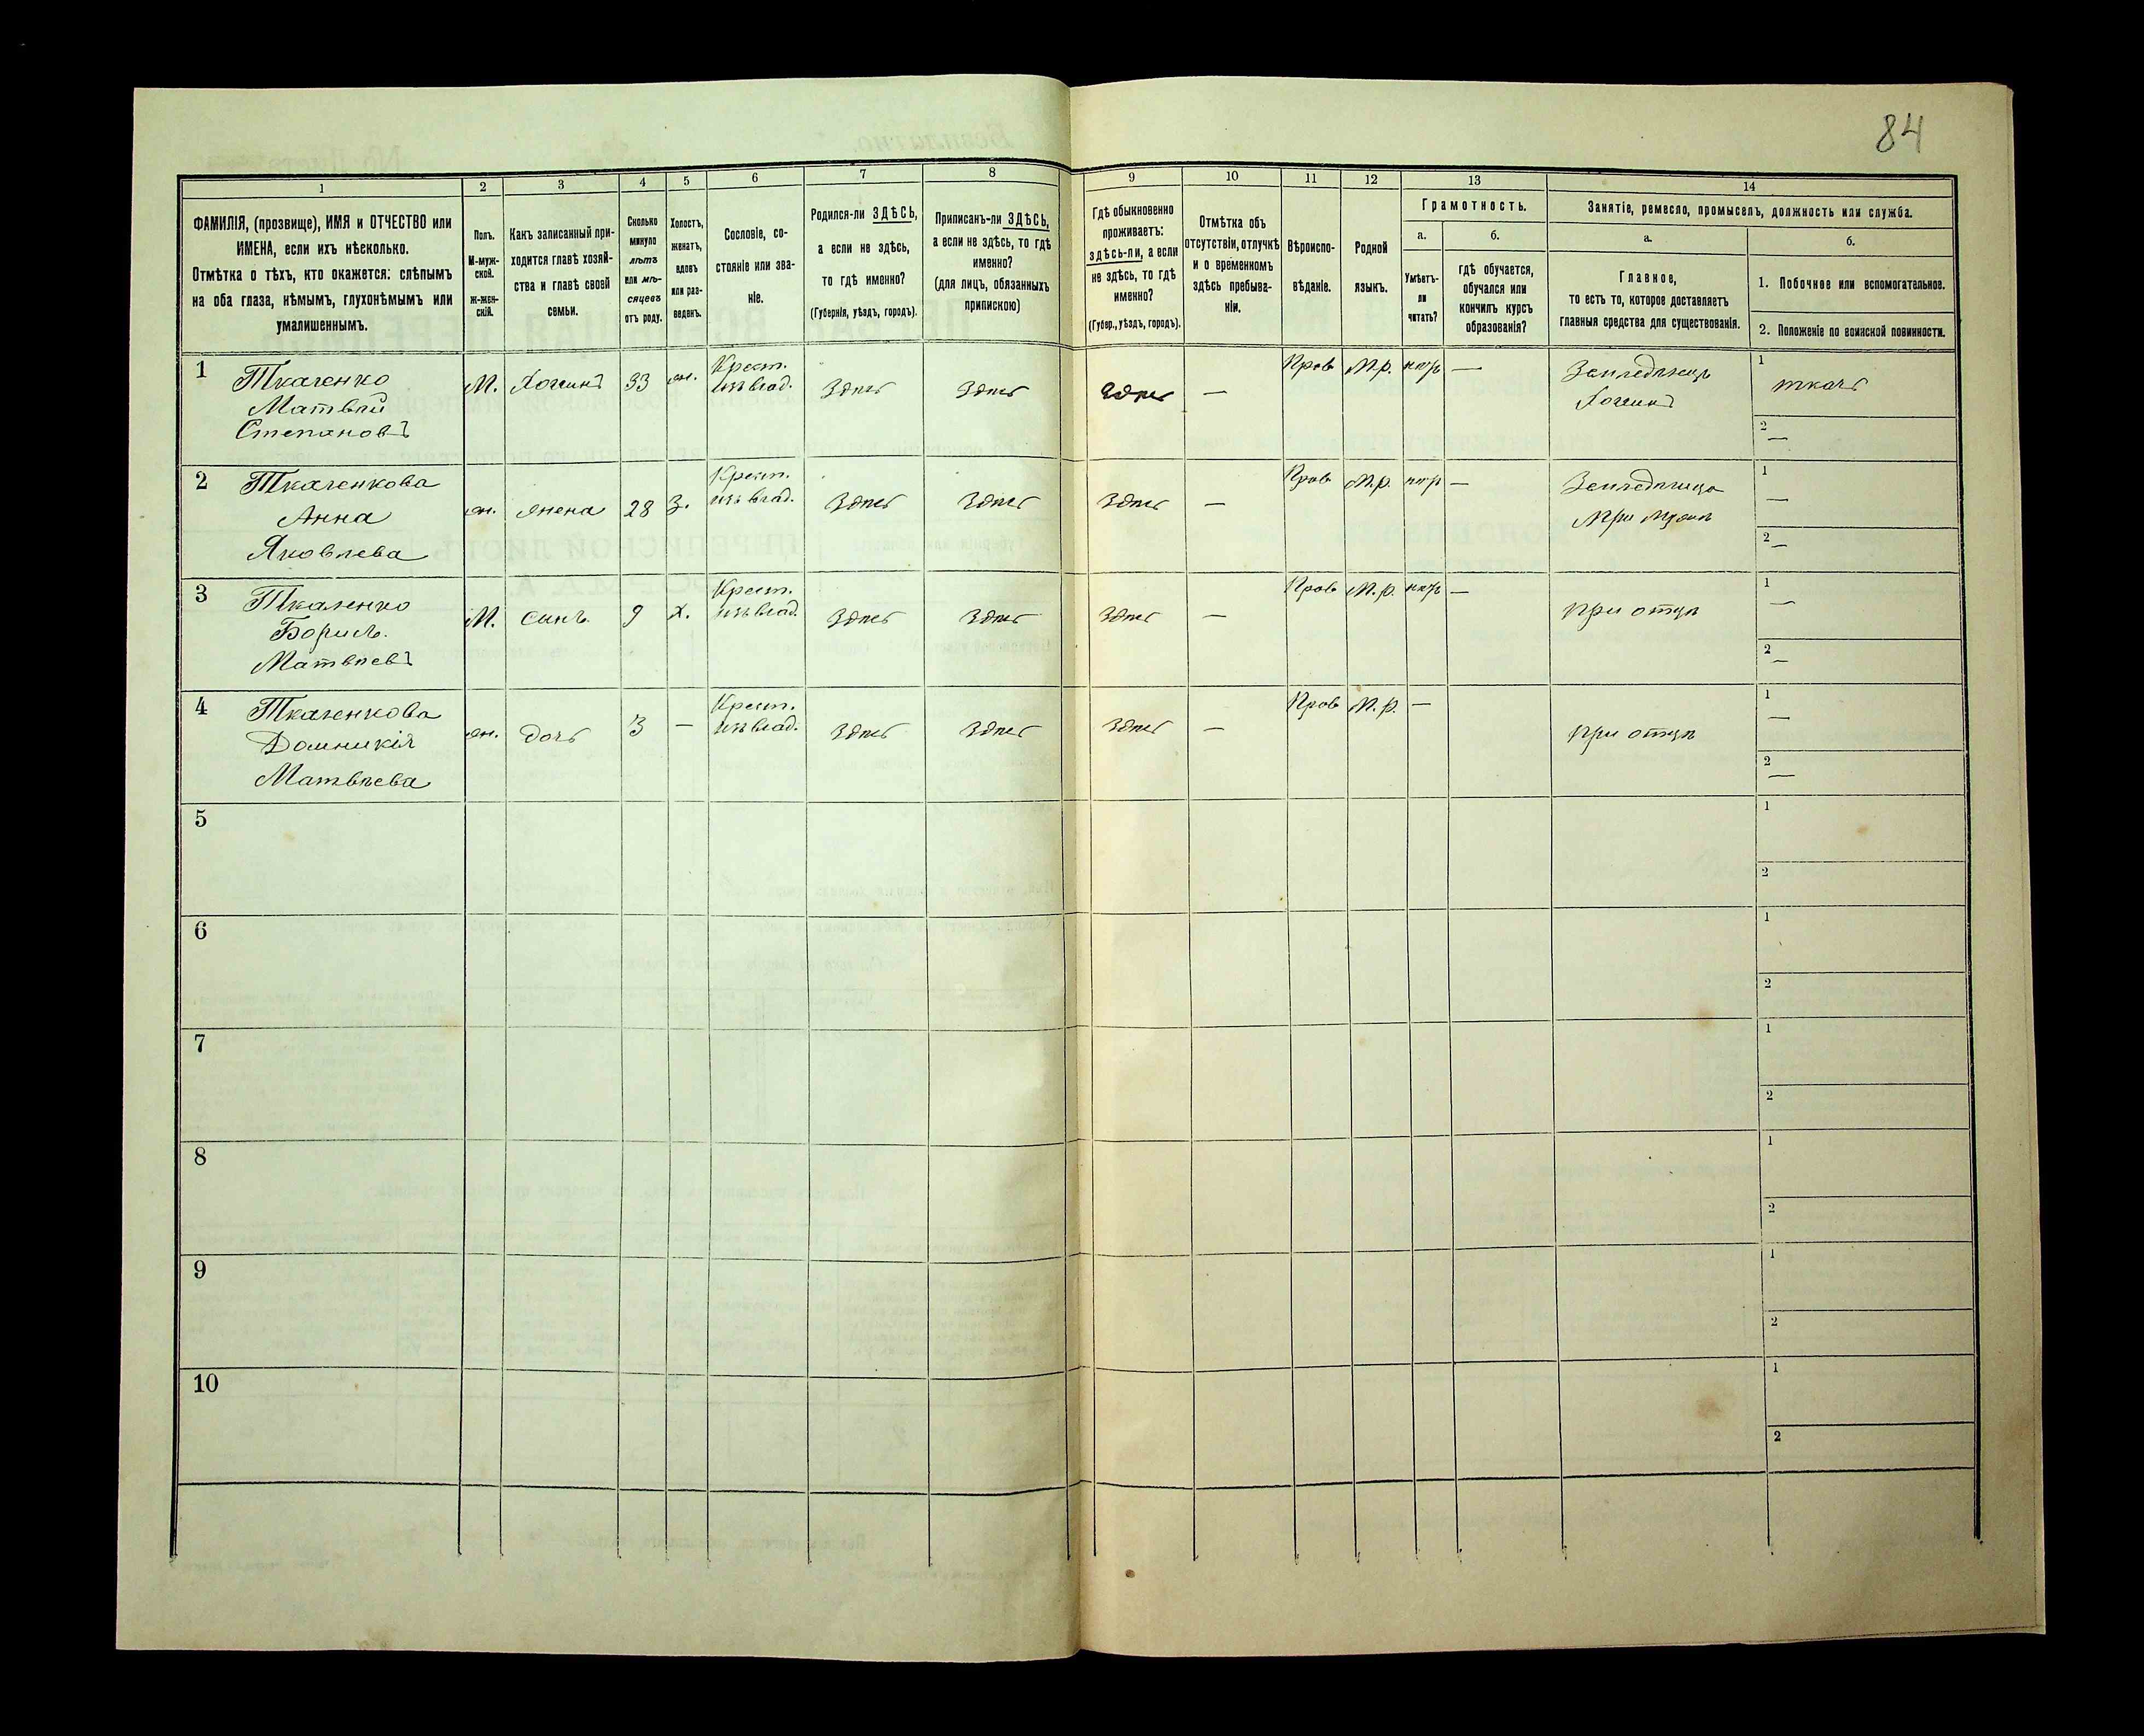 84
1
2
3
4
5
6
7
8
9
10
11
12
13
14
ФАМИЛІЯ, (прозвище), ИМЯ и ОТЧЕСТВО или
ИМЕНА, если ихъ нѣсколько.
Отмѣтка о тѣхъ, кто окажется: слѣпымъ
на оба глаза, нѣмымъ, глухонѣмымъ или
умалишеннымъ.
Полъ.
М-муж-
ской.
Ж-жен-
скій.
Какъ записанный при-
ходится главѣ хозяй-
ства и главѣ своей
семьи.
Сколько
минуло
лѣтъ
или мѣ-
сяцевъ
отъ роду.
Холостъ,
женатъ,
вдовъ
или раз-
веденъ.
Сословіе, со-
стояніе или зва-
ніе.
Родился-ли ЗДѢСЬ,
а если не здѣсь,
то гдѣ именно?
(Губернія, уѣздъ, городъ).
Приписанъ-ли ЗДѢСЬ,
а если не здѣсь, то гдѣ
именно?
(для лицъ, обязанныхъ
припискою)
Гдѣ обыкновенно
проживаетъ:
здѣсь-ли, а если
не здѣсь, то гдѣ
именно?
(Губер., уѣздъ, городъ).
Отмѣтка объ
отсутствіи, отлучкѣ
и о временномъ
здѣсь пребыва-
ніи.
Вѣроиспо-
вѣданіе.
Родной
языкъ.
Грамотность.
а.
Умѣетъ-
ли
читать?
б.
гдѣ обучается,
обучался или
кончилъ курсъ
образованія?
Занятіе, ремесло, промыселъ, должность или служба.
а.
Главное,
то есть то, которое доставляетъ
главныя средства для существованія.
б.
1. Побочное или вспомогательное.
2. Положеніе по воинской повинности.
1 Ткаченко
Матвѣй
Степановъ
М. Хозяинъ 33 ж. Крест. изъ влад. Здѣсь Здѣсь Здѣсь — Прав М.р. нѣтъ — Земледѣлецъ Хозяинъ 1 ткачъ 2 —
2 Ткаченкова
Анна
Яковлева
ж. жена 28 З. Крест. изъ влад. Здѣсь Здѣсь Здѣсь — Прав М.р. нѣтъ — При мужѣ 1 — 2 —
3 Ткаченко
Борисъ.
Матвѣевъ
М. сынъ 9 х. Крест. изъ влад. Здѣсь Здѣсь Здѣсь — Прав М.р. нѣтъ — при отцѣ 1 — 2 —
4 Ткаченкова
Домникія
Матвѣева
ж. дочь 3 — Крест. изъ влад. Здѣсь Здѣсь Здѣсь — Прав М.р. — при отцѣ 1 — 2 —
5 1 2
6 1 2
7 1 2
8 1 2
9 1 2
10 1 2